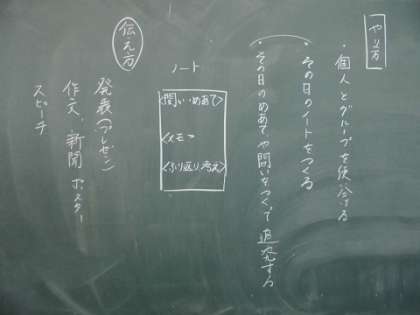 やり方
・個人とグループを使い分ける
・その日のノートをつくる
・その日のめあてや問いをつくって追究する
ノート
<問い・めあて>
<メモ>
<ふり返り、考え>
伝え方
発表(プレゼン)
作文、新聞 ポスター
スピーチ